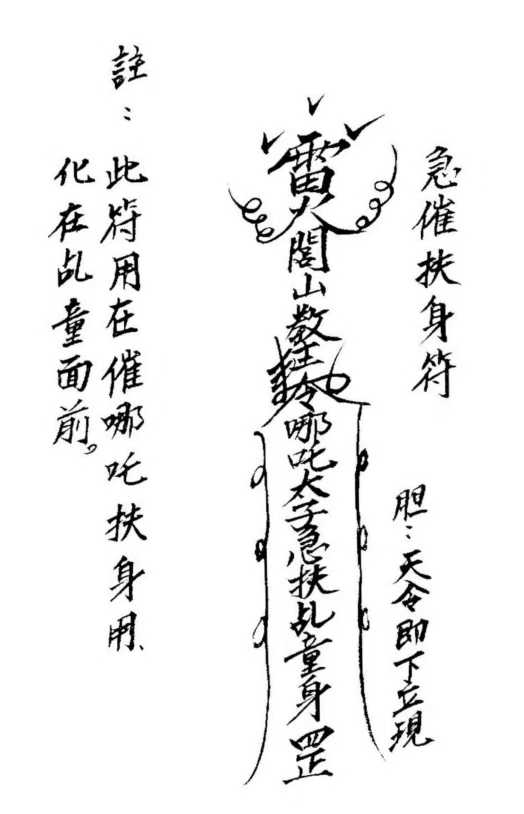 急催扶身符
胆：天令即下立現
雷火閭山教主敕令哪吒太子急扶乩童身罡
註：此符用在催哪吒扶身用、
化在乩童面前。